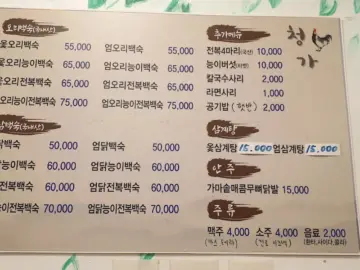 오리백숙(국내산)
옻오리백숙 55,000
옻오리능이백숙 65,000
옻오리전복백숙 65,000
옻오리능이전복백숙 75,000
엄오리백숙 55,000
엄오리능이백숙 65,000
엄오리전복백숙 65,000
엄오리능이전복백숙 75,000
닭백숙(국내산)
닭백숙 50,000
닭능이백숙 60,000
닭전복백숙 60,000
능이전복백숙 70,000
엄닭백숙 50,000
엄닭능이백숙 60,000
엄닭전복백숙 60,000
엄닭능이전복백숙 70,000
추가메뉴
전복4마리(국산) 10,000
능이버섯 10,000
칼국수사리 2,000
라면사리 1,000
공기밥 2,000
삼계탕
옻삼계탕 15,000 엄삼계탕 15,000
안주
가마솥매콤무뼈닭발 15,000
주류
맥주 4,000 소주 4,000 음료 2,000
(환타,사이다,콜라)
청가